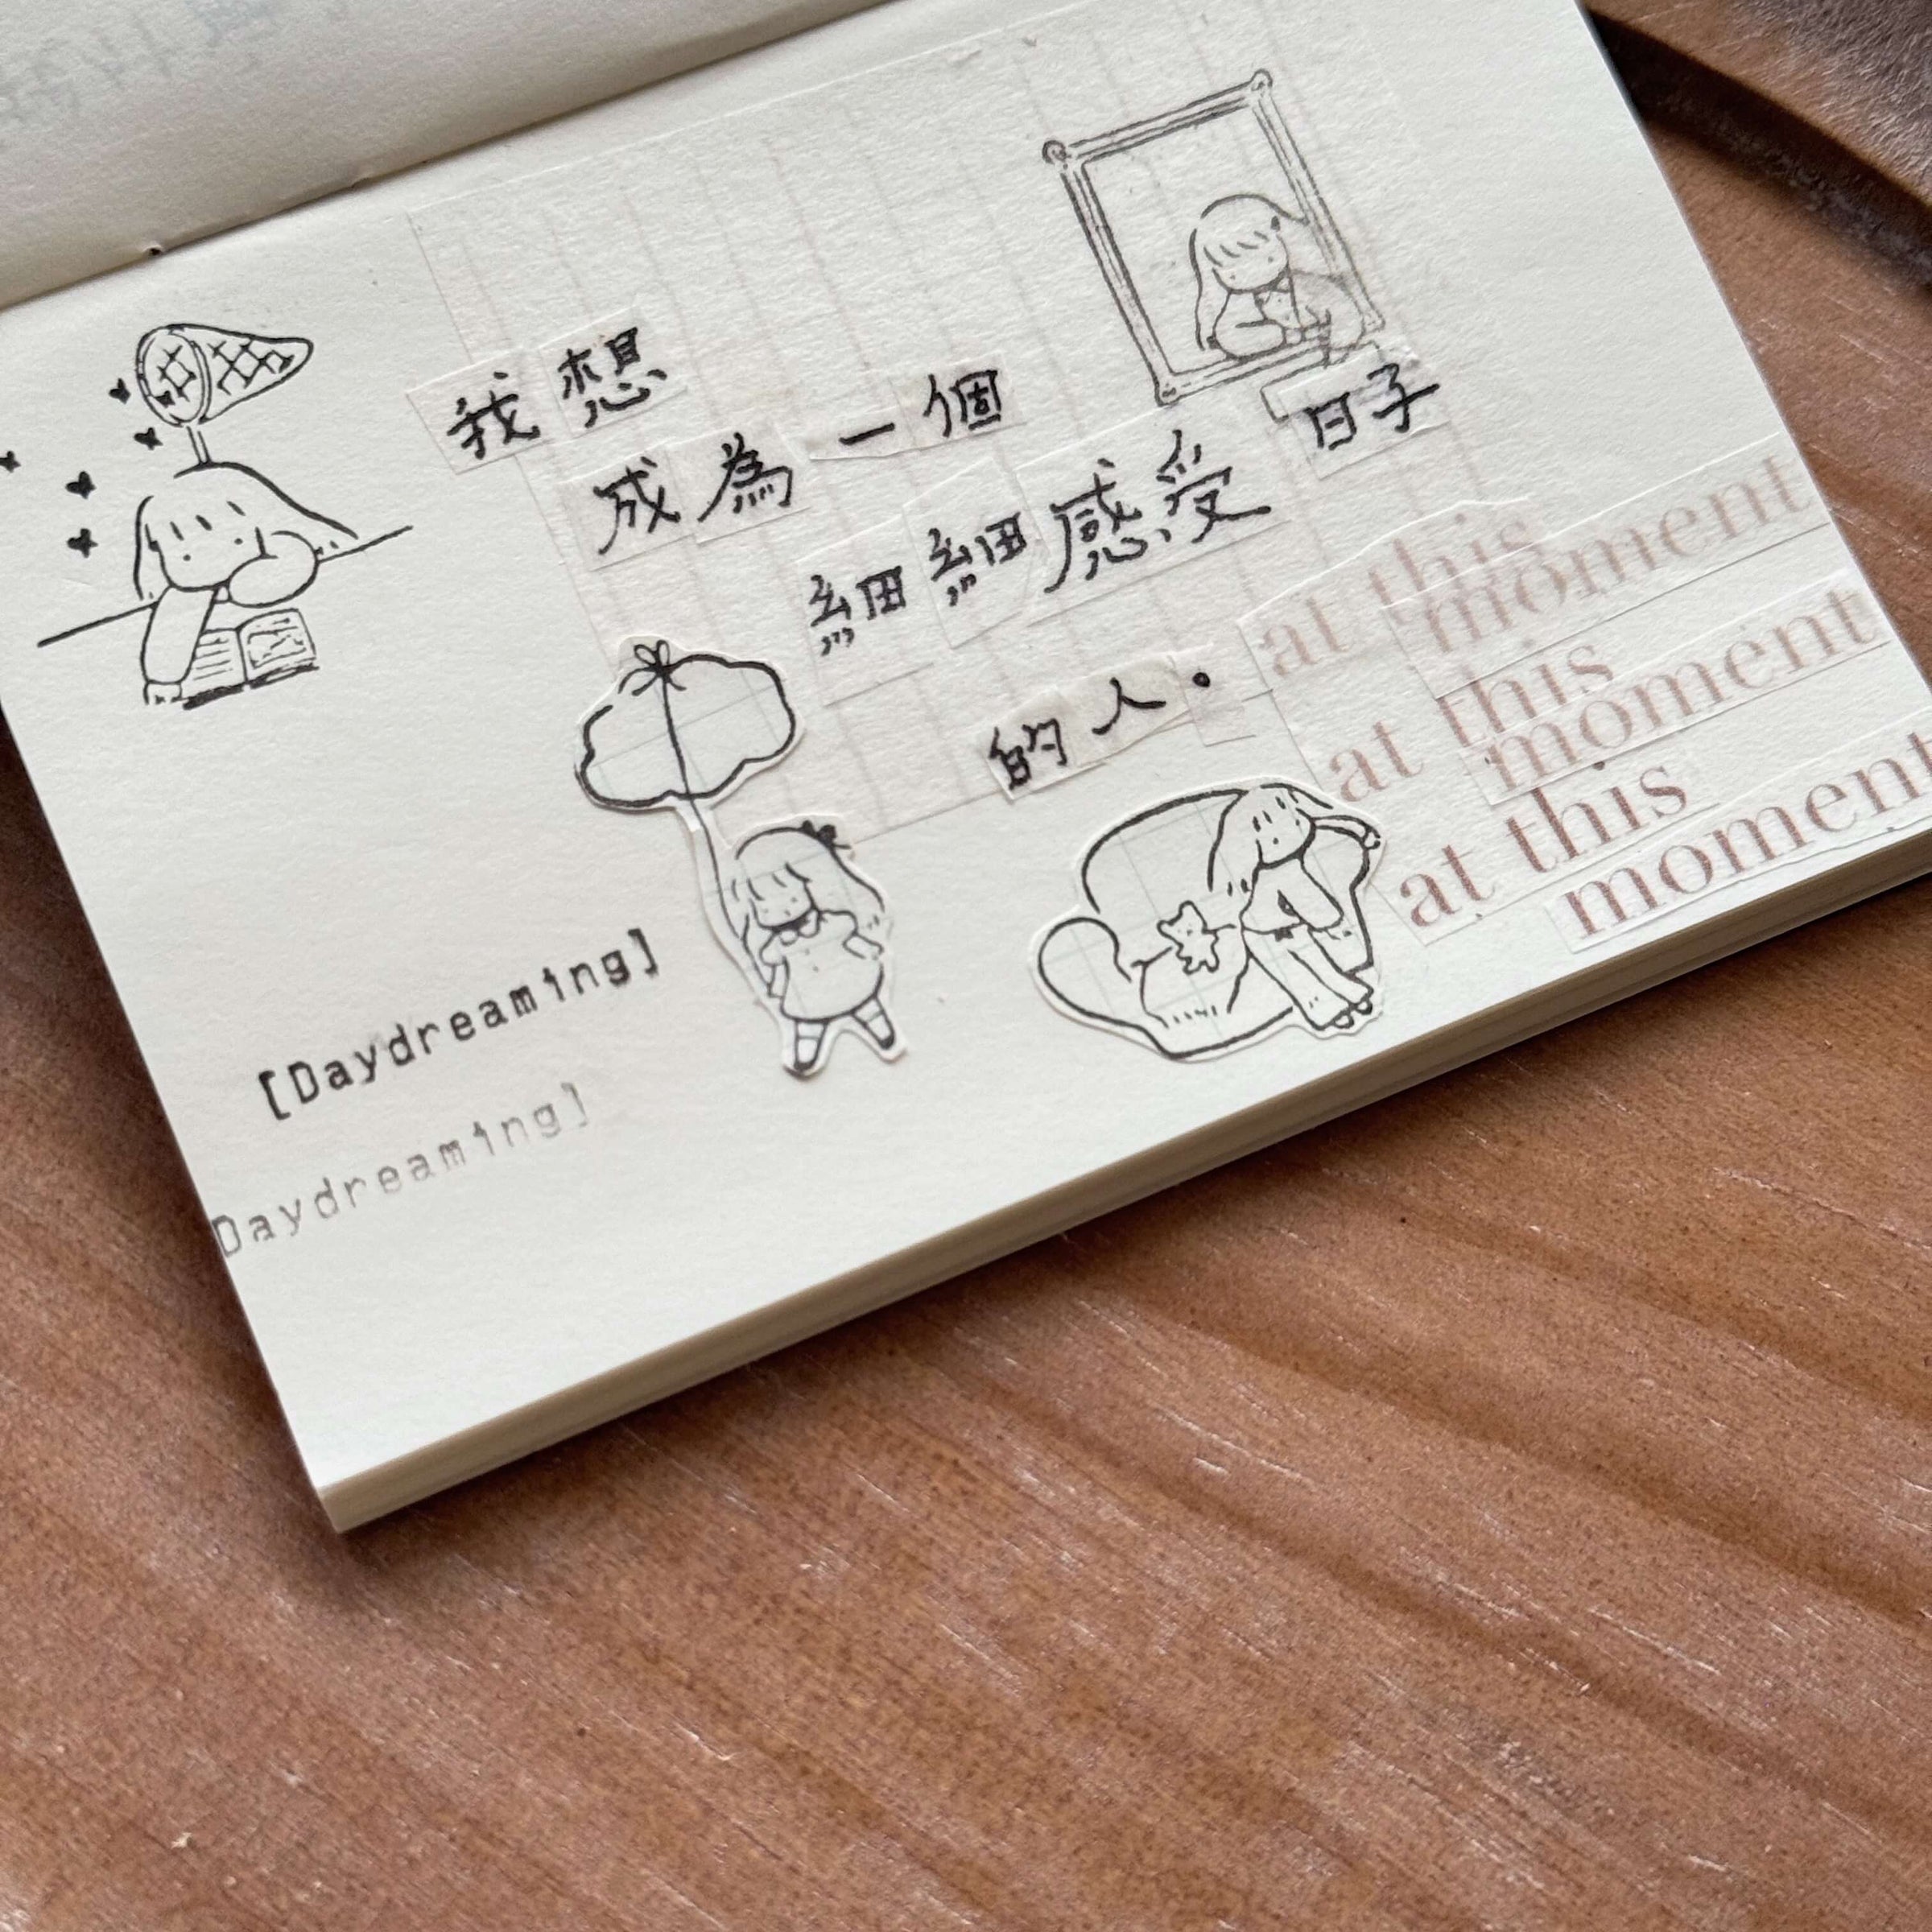 我想
成為一個
細細感受日子
的人。
at this
moment
at this
moment
at this
moment
[Daydreaming]
Daydreaming]